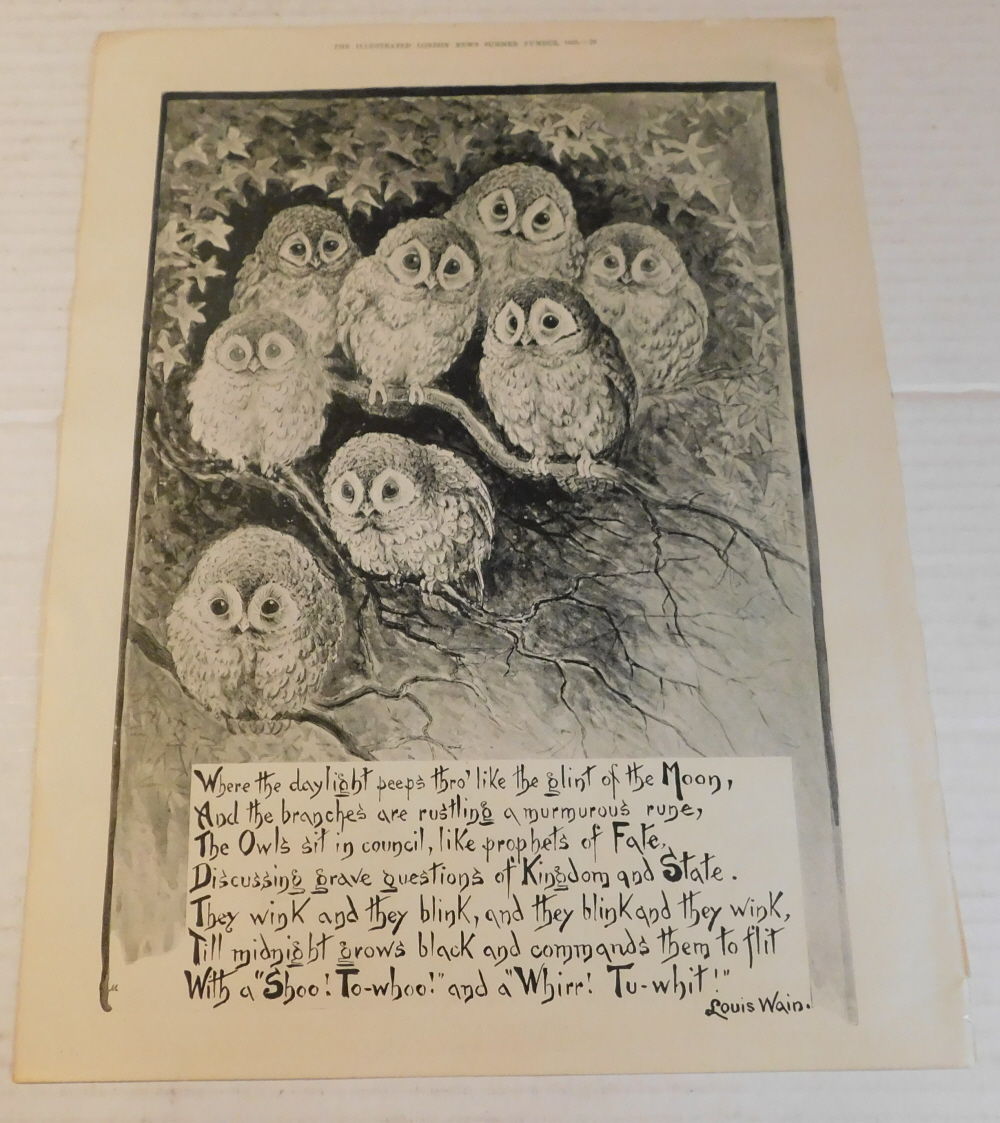 THE ILLUSTRATED LONDON NEWS SUMMER NUMBER,
Where the daylight peeps thro' like the glint of the Moon,
And the branches are rustling a murmurous rune,
The Owls sit in council, like prophets of Fate,
Discussing grave questions of Kingdom and State.
They wink and they blink, and they blink and they wink,
Till midnight grows black and commands them to flit
With a "Shoo! To-whoo!" and a "Whirr! Tu-whit!"
Louis Wain.